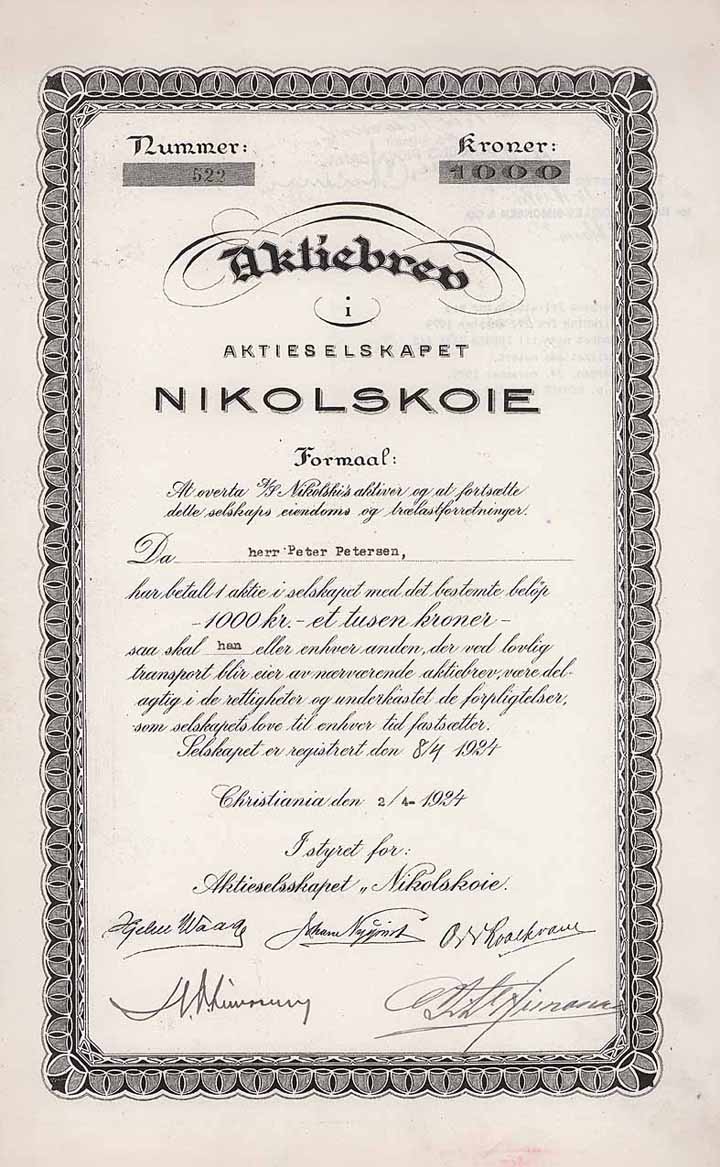 Nummer:
522
Kroner:
1000
Aktiebrev
i
AKTIESELSKAPET
NIKOLSKOIE
Formaal:
At overta A/S Nikolski's aktiver og at fortsætte
dette selskaps eiendoms og trælastforretninger.
Da herr Peter Petersen,
har betalt 1 aktie i selskapet med det bestemte beløp
–1000 kr. – et tusen kroner –
saa skal han eller enhver anden, der ved lovlig
transport blir eier av nærværende aktiebrev, være del-
agtig i de rettigheter og underkastet de forpligtelser,
som selskapets love til enhver tid fastsætter.
Selskapet er registrert den 8/4 1924
Christiania den 2/4- 1924
I styret for:
Aktieselsskapet „Nikolskoie.
Waage